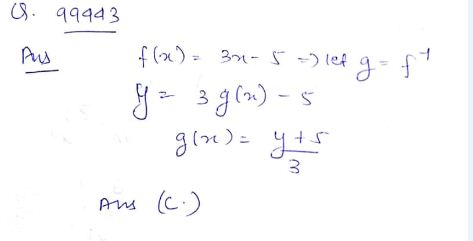 Q. 99443
Ans f(x) = 3x - 5 => let g = f⁻¹
y = 3 g(x) - 5
g(x) = y + 5 / 3
Ans (C.)